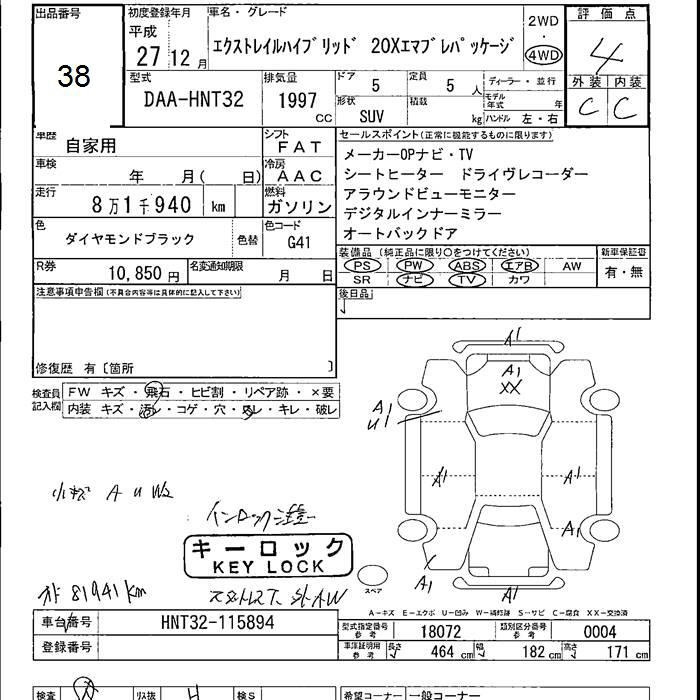 出品番号
38
初度登録年月
平成
27 12 月
車名・グレード
エクストレイルハイブリッド 20Xエマブレパッケージ
2WD
・
4WD
評価点
4
外装 内装
C C
型式
DAA-HNT32
排気量
1997
CC
ドア
5
定員
5 人
形状
SUV
積載
kg
ディーラー・並行
モデル年式 年
ハンドル 左・右
車歴
自家用
シフト
FAT
車検
年 月( 日)
冷房
AAC
走行
8万1千940 km
燃料
ガソリン
色
ダイヤモンドブラック
色替
色コード
G41
R券
10,850 円
名変通知期限
月 日
セールスポイント(正常に機能するものに限ります)
メーカーOPナビ・TV
シートヒーター ドライヴレコーダー
アラウンドビューモニター
デジタルインナーミラー
オートバックドア
装備品 (純正品に限り○をつけてください)
PS PW ABS エアB AW
SR ナビ TV カワ
新車保証書
有・無
後日品
注意事項申告欄(不具合内容等は具体的に記入して下さい)
修復歴 有〔箇所 〕
検査員記入欄
FW キズ・飛石・ヒビ割・リペア跡・×要
内装 キズ・汚レ・コゲ・穴・スレ・キレ・破レ
A1
A1
XX
A1
U1
A1
A1
A1
A1
A1
小キズ A U W2
インロック注意
キーロック
KEY LOCK
スペア
81941km
A-キズ E-エクボ U-凹み W-補修跡 S-サビ C-腐食 XX-交換済
車台番号
HNT32-115894
登録番号
型式指定番号
参考
18072
類別区分番号
参考
0004
車検証明用
参考
長さ
464 cm
幅
182 cm
高さ
171 cm
検査
リス抜
検S
希望コーナー
一般コーナー